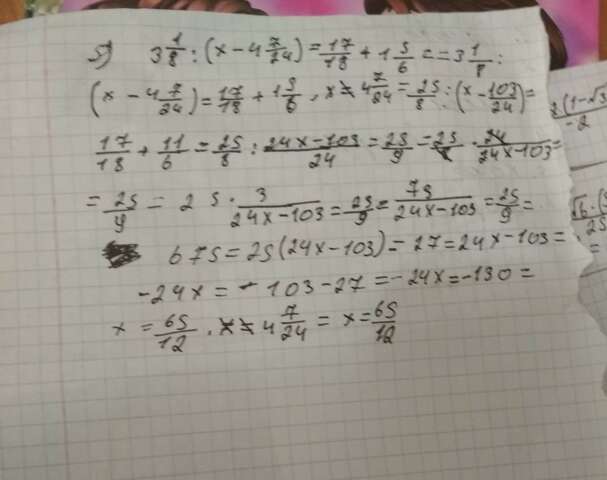 5) 3 1/8 : (x - 4 7/24) = 17/18 + 1 5/6 = = 3 1/8 :
(x - 4 7/24) = 17/18 + 1 5/6 , x ≠ 4 7/24 = 25/8 : (x - 103/24) =
17/18 + 11/6 = 25/8 : 24x-103/24 = 25/9 = 25/8 · 24/24x-103 =
= 25/9 = 25 · 3/24x-103 = 25/9 = 75/24x-103 = 25/9 =
675 = 25(24x-103) = 27 = 24x-103 =
-24x = -103-27 = -24x = -130 =
x = 65/12 , x ≠ 4 7/24 = x = 65/12
3(1-√3
-2
√6 · (5
25
=